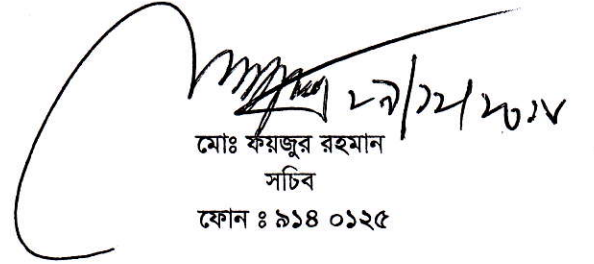 ২৭/১২/২০১৮
মোঃ ফয়জুর রহমান
সচিব
ফোন ঃ ৯১৪ ০১২৫